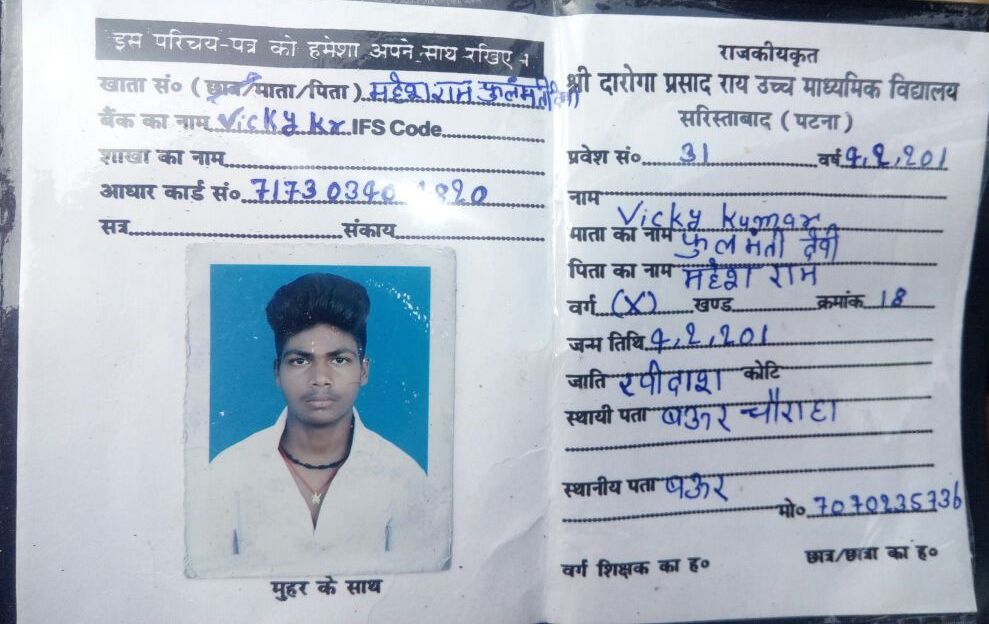 इस परिचय-पत्र को हमेशा अपने साथ रखिए ।
खाता सं० (छात्र/माता/पिता) महेश राम फुलमती देवी
बैंक का नाम Vicky Kr. IFS Code
शाखा का नाम
आधार कार्ड सं० 7173 0340 1820
सत्र संकाय
मुहर के साथ
राजकीयकृत
श्री दारोगा प्रसाद राय उच्च माध्यमिक विद्यालय
सरिस्ताबाद (पटना)
प्रवेश सं० 31 वर्ष
नाम Vicky Kumar
माता का नाम फुलमंती देवी
पिता का नाम महेश राम
वर्ग (X) खण्ड क्रमांक 18
जन्म तिथि
जाति रवीदाश कोटि
स्थायी पता बऊर चौराहा
स्थानीय पता बऊर
मो० 7070235736
वर्ग शिक्षक का ह० छात्र/छात्रा का ह०